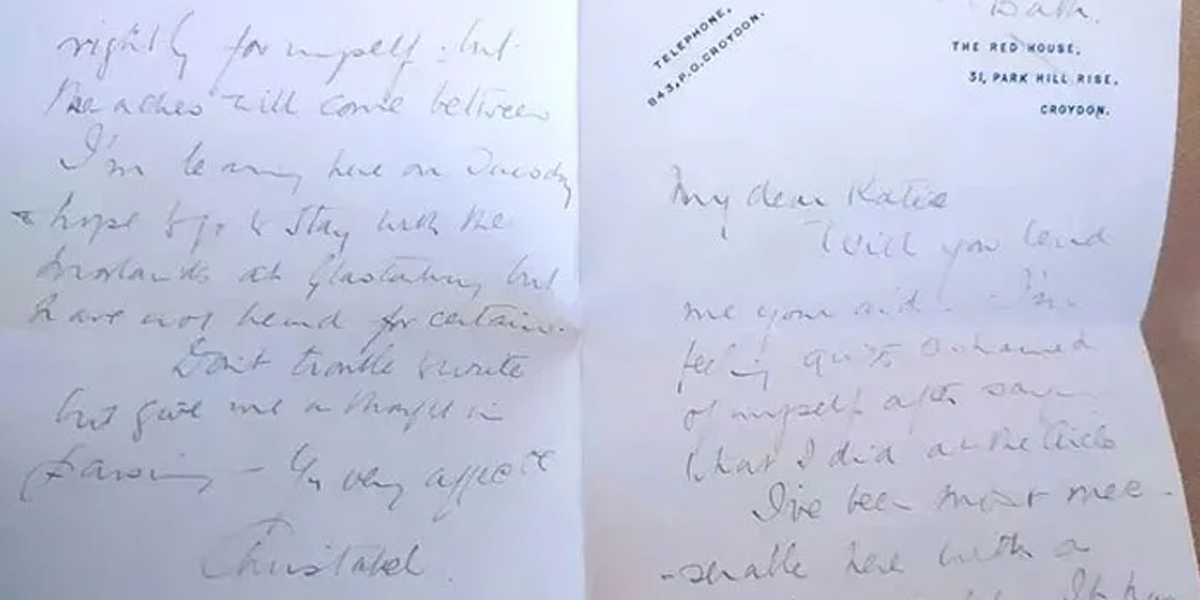 Bath.
THE RED HOUSE,
31, PARK HILL RISE,
CROYDON.
TELEPHONE,
843, P.O. CROYDON.
My dear Katie
Will you lend
me your aid - I'm
feeling quite ashamed
of myself after saying
what I did at the Circle
I've been most mee-
-serable here with a
It has
rightly for myself - but
the aches will come between
I'm leaving here on Tuesday
& hope to go to stay with the
at Glastonbury but
have not heard for certain.
Don't trouble to write
but give me a thought in
passing - Yr very affecte
Christabel.